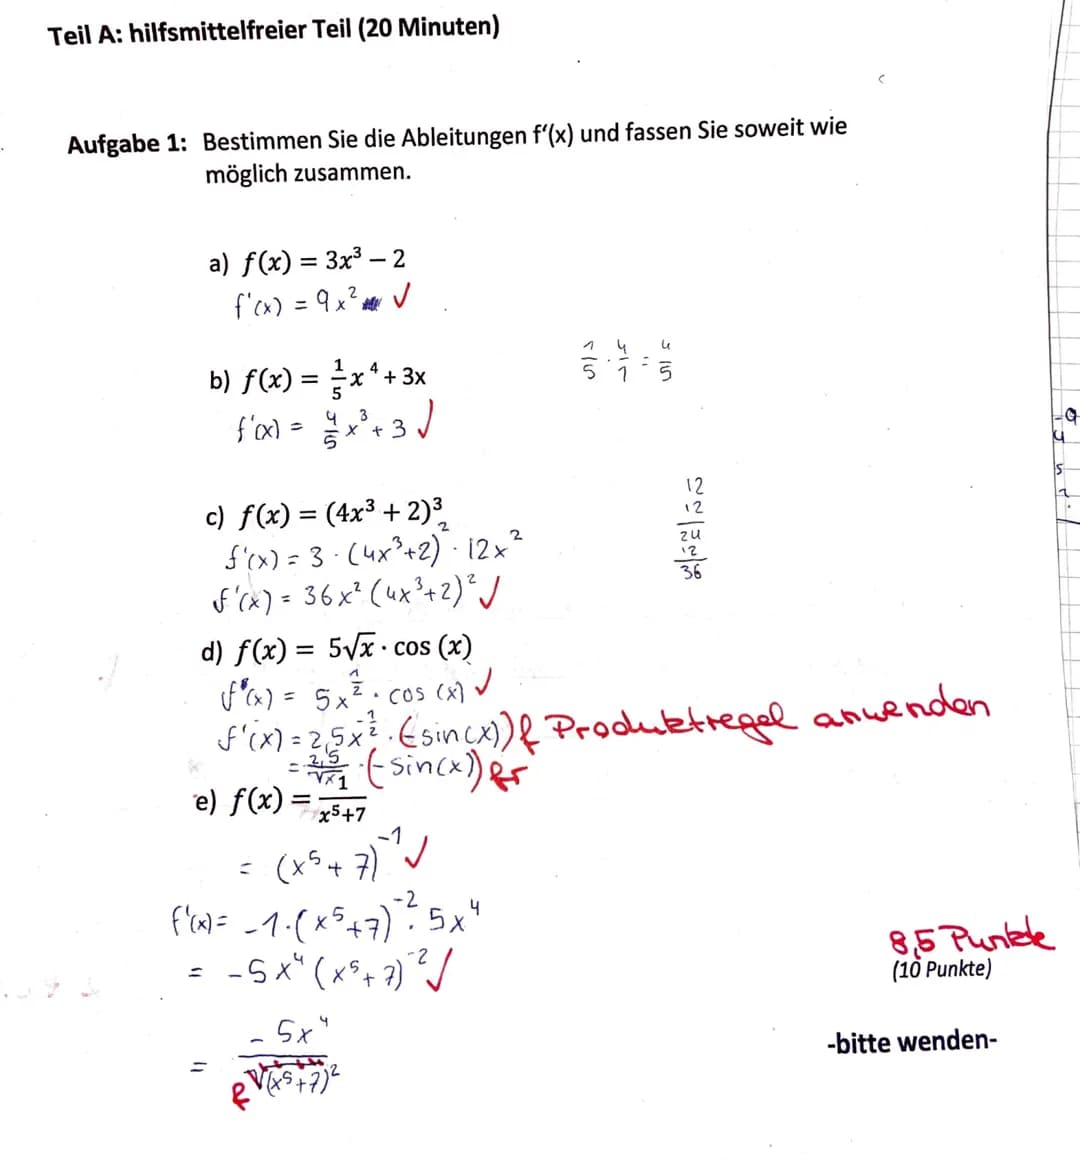 Teil A: hilfsmittelfreier Teil (20 Minuten)
Aufgabe 1: Bestimmen Sie die Ableitungen f'(x) und fassen Sie soweit wie
möglich zusammen.
a) f(x) = 3x³ – 2
f'(x) = 9x² ✓
b) f(x) = 1/5 x⁴ + 3x
1/5 · 4/1 = 4/5
f'(x) = 4/5 x³ + 3 ✓
c) f(x) = (4x³ + 2)³
f'(x) = 3 · (4x³+2)² · 12x²
f'(x) = 36x² (4x³+2)² ✓
12
12
24
12
36
d) f(x) = 5√x · cos (x)
f(x) = 5x^(1/2) · cos (x) ✓
f'(x) = 2,5x^(-1/2) · (-sin(x)) f Produktregel anwenden
= 2,5/√x · (-sin(x)) fr
e) f(x) = 1/(x⁵+7)
= (x⁵+7)⁻¹ ✓
f'(x) = -1·(x⁵+7)⁻² · 5x⁴
= -5x⁴ (x⁵+7)⁻² ✓
= -5x⁴/√(x⁵+7)²
f
8,5 Punkte
(10 Punkte)
-bitte wenden-